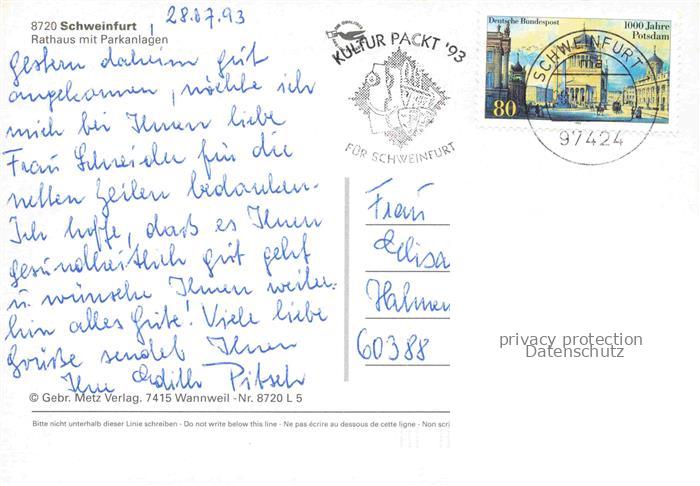 28.07.93
8720 Schweinfurt
Rathaus mit Parkanlagen
Gestern daheim gut
angekommen, möchte ich
mich bei Ihnen liebe
Frau Schneider für die
netten Zeilen bedanken.
Ich hoffe, daß es Ihnen
gesundheitlich gut geht
u. wünsche Ihnen weiter-
hin alles Gute! Viele liebe
Grüße sendet Ihnen
Ihre Edith Pitsch
© Gebr. Metz Verlag. 7415 Wannweil - Nr. 8720 L 5
Bitte nicht unterhalb dieser Linie schreiben - Do not write below this line - Ne pas écrire au dessous de cette ligne - Non scri
KULTUR PACKT '93
FÜR SCHWEINFURT
Deutsche Bundespost
1000 Jahre
Potsdam
80
SCHWEINFURT
97424
Frau
Elisa
Hahnen
60388
privacy protection
Datenschutz